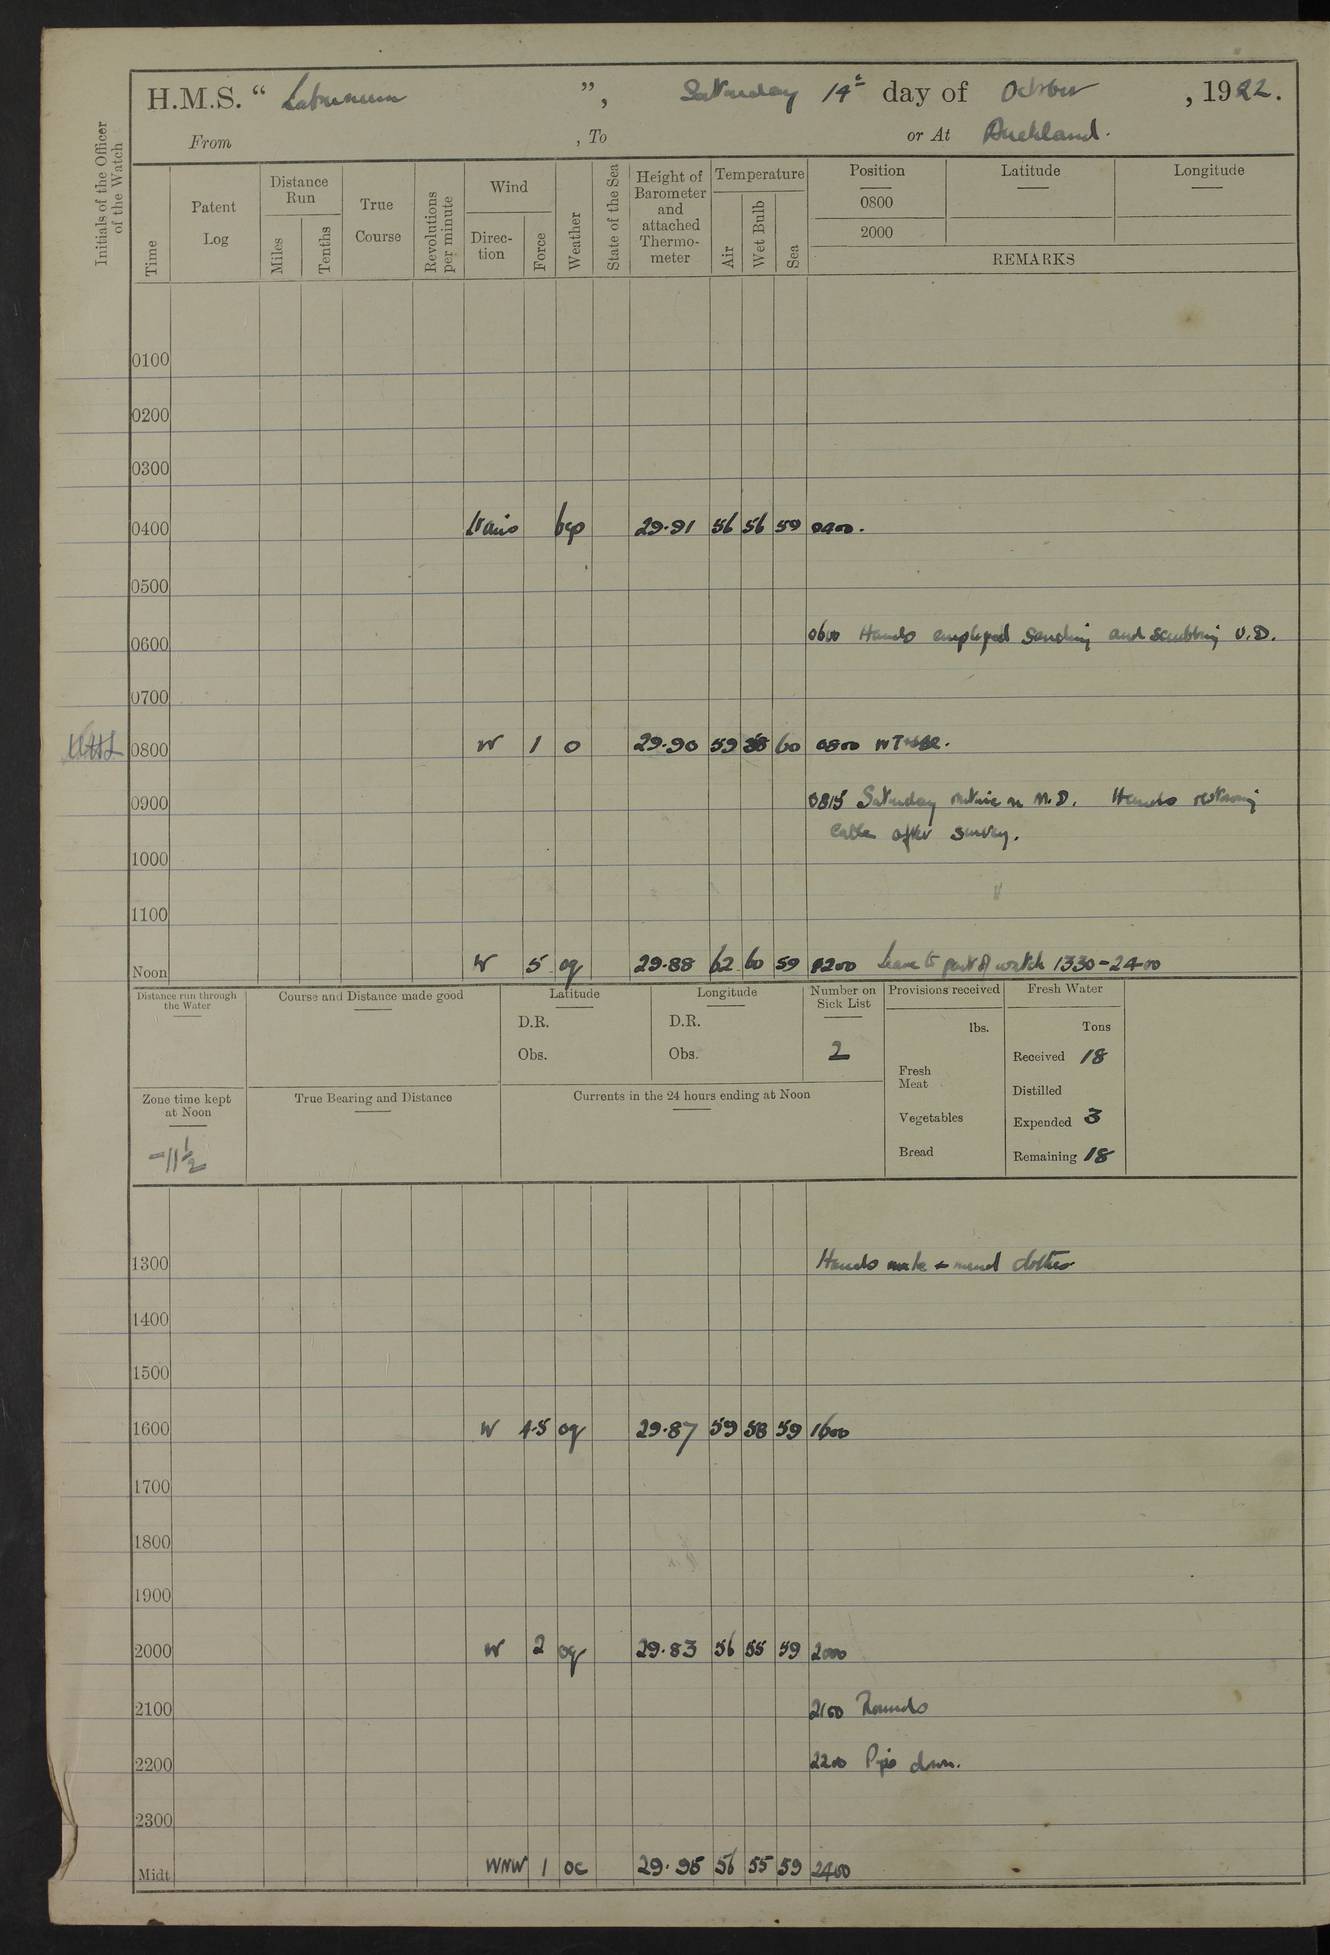 H.M.S. “ Laburnum ”, Saturday 14th day of October , 1922.
From , To or At Auckland.
Initials of the Officer of the Watch
Time
Patent Log
Distance Run
Miles
Tenths
True Course
Revolutions per minute
Wind
Direction
Force
Weather
State of the Sea
Height of Barometer and attached Thermometer
Temperature
Air
Wet Bulb
Sea
Position
0800
2000
Latitude
Longitude
REMARKS
0100
0200
0300
0400 bcp 29.91 56 56 59 0400.
0500
0600 0600 Hands employed sanding and scrubbing U.D.
0700
0800 W 1 o 29.90 59 58 60 0800
0900 0815 Saturday routine on M.D. Hands restowing
cable after survey.
1000
1100
Noon W 5 oq 29.88 62 60 59 1200 Leave to part of watch 1330-2400
Distance run through the Water
Course and Distance made good
Latitude
D.R.
Obs.
Longitude
D.R.
Obs.
Number on Sick List
2
Provisions received
lbs.
Fresh Meat
Vegetables
Bread
Fresh Water
Tons
Received 18
Distilled
Expended 3
Remaining 18
Zone time kept at Noon
-11½
True Bearing and Distance
Currents in the 24 hours ending at Noon
1300 Hands make & mend clothes
1400
1500
1600 W 4.5 oq 29.87 59 58 59 1600
1700
1800
1900
2000 W 2 oq 29.83 56 55 59 2000
2100 2100 Rounds
2200 2200 Pipe down.
2300
Midt WNW 1 oc 29.95 56 55 59 2400